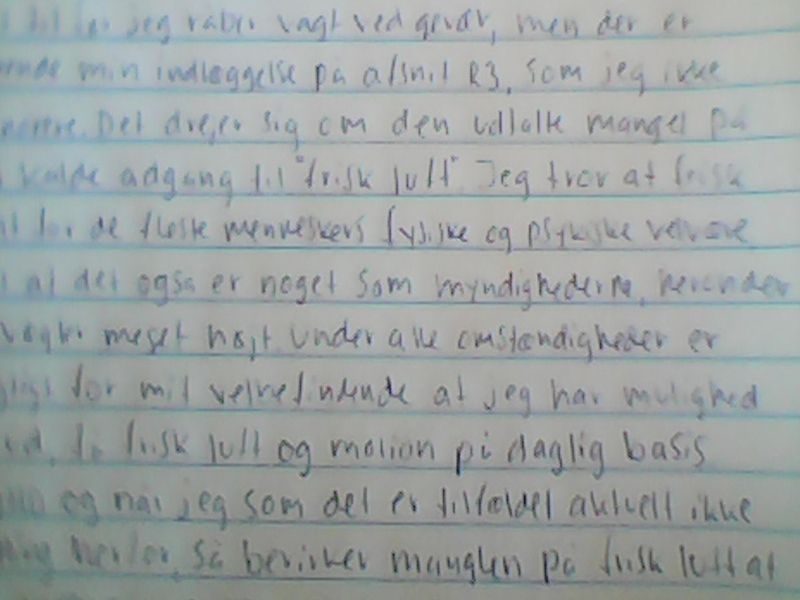 jeg råber vagt ved gevær, men der er
min indlæggelse på afsnit R3, som jeg ikke
Det drejer sig om den udtalte mangel på
kalde adgang til "frisk luft". Jeg tror at frisk
for de fleste menneskers fysiske og psykiske velvære
at det også er noget som myndighederne, herunder
meget højt. Under alle omstændigheder er
for mit velbefindende at jeg har mulighed
frisk luft og motion på daglig basis
og når jeg som det er tilfældet aktuelt ikke
herfor, så bevirker manglen på frisk luft at